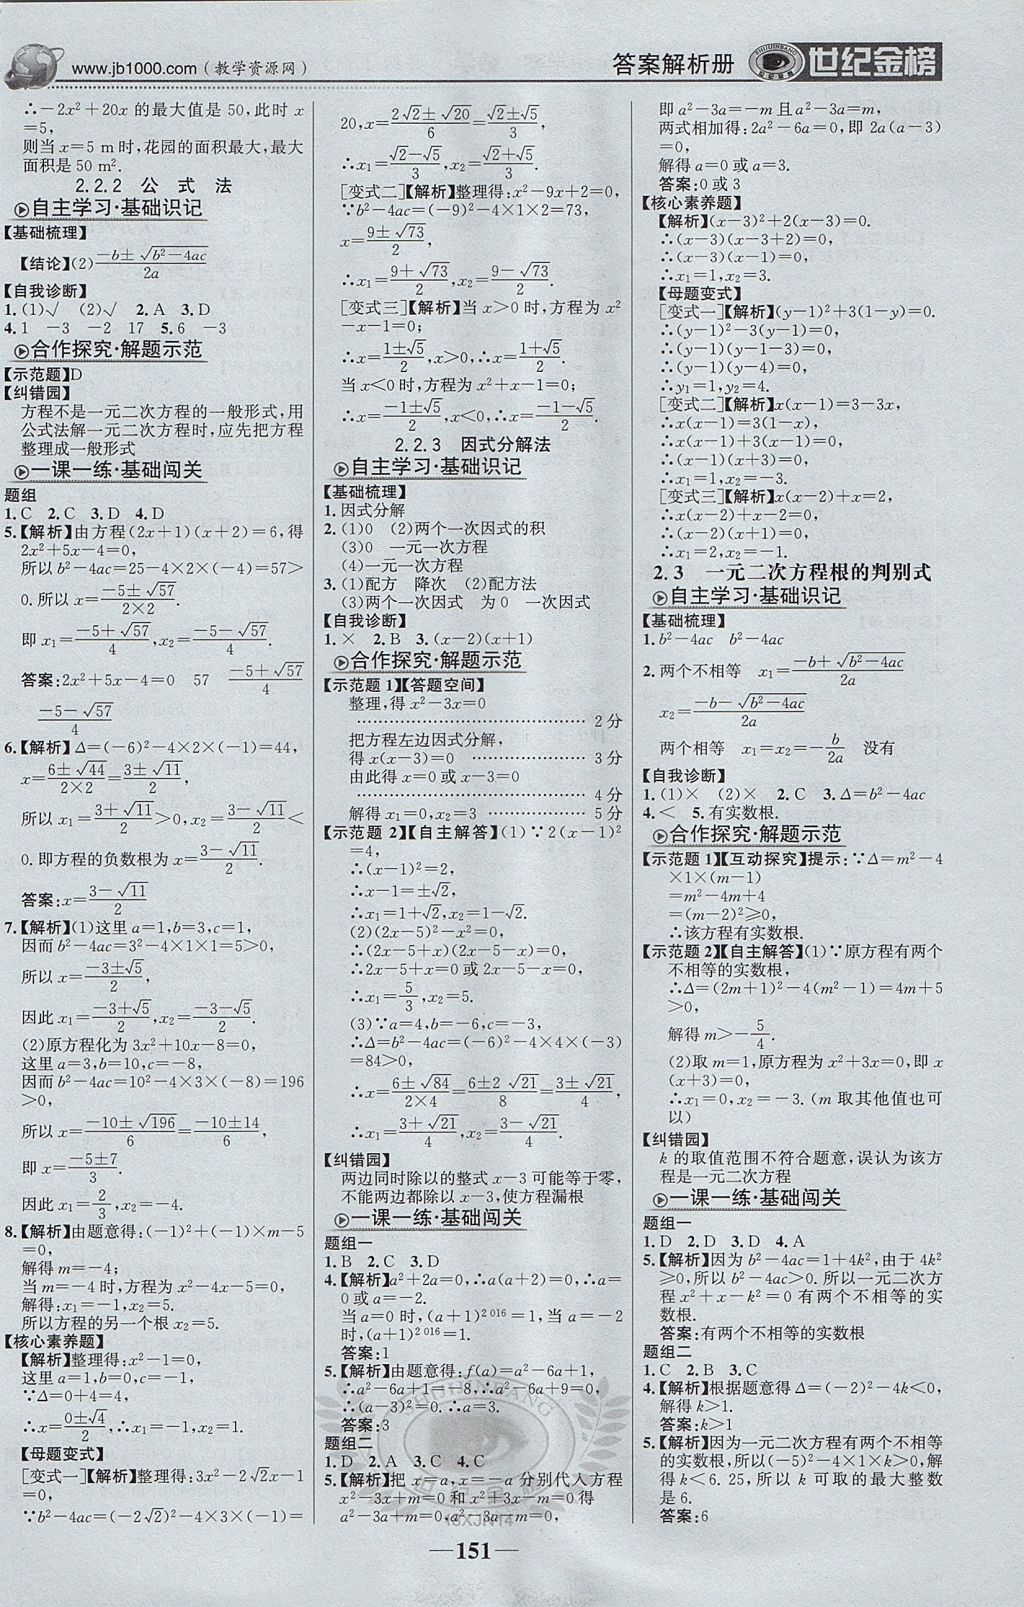 www.jb1000.com(教学资源网)
答案解析册
世纪金榜
SHIJIJINBANG
∴-2x²+20x 的最大值是 50,此时 x
=5,
则当 x=5 m 时,花园的面积最大,最大
面积是 50 m².
2.2.2 公 式 法
自主学习·基础识记
【基础梳理】
【结论】(2) (-b±√(b²-4ac))/2a
【自我诊断】
1.(1)√ (2)√ 2.A 3.D
4.1 -3 -2 17 5.6 -3
合作探究·解题示范
【示范题】D
【纠错园】
方程不是一元二次方程的一般形式,用
公式法解一元二次方程时,应先把方程
整理成一般形式
一课一练·基础闯关
题组
1.C 2.C 3.D 4.D
5.【解析】由方程(2x+1)(x+2)=6,得
2x²+5x-4=0,
所以 b²-4ac=25-4×2×(-4)=57>
0.所以 x=(-5±√57)/(2×2).
即 x₁=(-5+√57)/4,x₂=(-5-√57)/4.
答案:2x²+5x-4=0 57 (-5+√57)/4
(-5-√57)/4
6.【解析】Δ=(-6)²-4×2×(-1)=44,
x=(6±√44)/(2×2)=(3±√11)/2,
所以 x₁=(3+√11)/2>0,x₂=(3-√11)/2<
0.即方程的负数根为 x=(3-√11)/2.
答案:x=(3-√11)/2
7.【解析】(1)这里 a=1,b=3,c=1,
因而 b²-4ac=3²-4×1×1=5>0,
所以 x=(-3±√5)/2,
因此 x₁=(-3+√5)/2,x₂=(-3-√5)/2.
(2)原方程化为 3x²+10x-8=0,
这里 a=3,b=10,c=-8,
因而 b²-4ac=10²-4×3×(-8)=196
>0,
所以 x=(-10±√196)/6=(-10±14)/6,
即 x=(-5±7)/3.
因此 x₁=2/3,x₂=-4.
8.【解析】由题意得:(-1)²+(-1)×m-5
=0,
解得 m=-4;
当 m=-4 时,方程为 x²-4x-5=0,
解得:x₁=-1,x₂=5.
所以方程的另一个根 x₂=5.
【核心素养题】
【解析】整理得:x²-1=0,
这里 a=1,b=0,c=-1,
∵Δ=0+4=4,
∴x=(0±√4)/2,∴x₁=1,x₂=-1.
【母题变式】
[变式一]【解析】整理得:3x²-2√2x-1=
0,
∵b²-4ac=(-2√2)²-4×3×(-1)=
20,x=(2√2±√20)/6=(√2±√5)/3,
∴x₁=(√2-√5)/3,x₂=(√2+√5)/3.
[变式二]【解析】整理得:x²-9x+2=0,
∵b²-4ac=(-9)²-4×1×2=73,
x=(9±√73)/2,
∴x₁=(9+√73)/2,x₂=(9-√73)/2.
[变式三]【解析】当 x>0 时,方程为 x²
-x-1=0;
∴x=(1±√5)/2,x>0,∴x=(1+√5)/2.
当 x<0 时,方程为 x²+x-1=0;
∴x=(-1±√5)/2,x<0,∴x=(-1-√5)/2.
2.2.3 因式分解法
自主学习·基础识记
【基础梳理】
1.因式分解
2.(1)0 (2)两个一次因式的积
(3)0 一元一次方程
(4)一元一次方程
3.(1)配方 降次 (2)配方法
(3)两个一次因式 为 0 一次因式
【自我诊断】
1.× 2.B 3.(x-2)(x+1)
合作探究·解题示范
【示范题 1】【答题空间】
整理,得 x²-3x=0
…… 2 分
把方程左边因式分解,
得 x(x-3)=0 …… 3 分
由此得 x=0 或 x-3=0
…… 4 分
解得 x₁=0,x₂=3 …… 5 分
【示范题 2】【自主解答】(1)∵2(x-1)²
=4,
∴(x-1)²=2,
∴x-1=±√2,
∴x₁=1+√2,x₂=1-√2.
(2)(2x-5)²-x²=0,
∴(2x-5+x)(2x-5-x)=0,
∴2x-5+x=0 或 2x-5-x=0,
∴x₁=5/3,x₂=5.
(3)∵a=4,b=-6,c=-3,
∴Δ=b²-4ac=(-6)²-4×4×(-3)
=84>0,
∴x=(6±√84)/(2×4)=(6±2√21)/8=(3±√21)/4,
∴x₁=(3+√21)/4,x₂=(3-√21)/4.
【纠错园】
两边同时除以的整式 x-3 可能等于零,
不能两边都除以 x-3,使方程漏根
一课一练·基础闯关
题组一
1.B 2.C 3.D
4.【解析】a²+2a=0,∴a(a+2)=0,∴a=
0或 a=-2.
当 a=0 时,(a+1)²⁰¹⁶=1,当 a=-2
时,(a+1)²⁰¹⁶=1.
答案:1
5.【解析】由题意得:f(a)=a²-6a+1,
∴a²-6a+1=-8,∴a=3.
答案:3
题组二
1.D 2.A 3.C 4.C
5.【解析】把 x=a,x=-a 分别代入方程
x²-3x+m=0 和 x²+3x-m=0 得
a²-3a+m=0,a²-3a-m=0,
—151—
即 a²-3a=-m 且 a²-3a=m,
两式相加得:2a²-6a=0,即 2a(a-3)
=0,
解得 a=0 或 a=3.
答案:0 或 3
【核心素养题】
【解析】(x-3)²+2(x-3)=0.
∴(x-3)(x-3+2)=0,
∴(x-3)(x-1)=0,
∴x₁=1,x₂=3.
【母题变式】
[变式一]【解析】(y-1)²+3(1-y)=0.
∴(y-1)²-3(y-1)=0,
∴(y-1)(y-1-3)=0,
∴(y-1)(y-4)=0,
∴y₁=1,y₂=4.
[变式二]【解析】x(x-1)=3-3x,
∴x(x-1)=3(1-x),
∴x(x-1)+3(x-1)=0,
∴(x-1)(x+3)=0,
∴x₁=1,x₂=-3.
[变式三]【解析】x(x-2)+x-2=0,
∴(x-2)(x+1)=0,
∴x₁=2,x₂=-1.
2.3 一元二次方程根的判别式
自主学习·基础识记
【基础梳理】
1.b²-4ac b²-4ac
2.两个不相等 x₁=(-b+√(b²-4ac))/2a
x₂=(-b-√(b²-4ac))/2a
两个相等 x₁=x₂=-b/2a 没有
【自我诊断】
1.(1)× (2)× 2.C 3.Δ=b²-4ac
4.< 5.有实数根.
合作探究·解题示范
【示范题 1】【互动探究】提示:∵Δ=m²-4
×1×(m-1)
=m²-4m+4
=(m-2)²≥0,
∴该方程有实数根.
【示范题 2】【自主解答】(1)∵原方程有两个
不相等的实数根,
∴Δ=(2m+1)²-4(m²-1)=4m+5
>0,
解得 m>-5/4.
(2)取 m=1,原方程为 x²+3x=0,即 x
(x+3)=0,
∴x₁=0,x₂=-3.(m 取其他值也可
以)
【纠错园】
k 的取值范围不符合题意,误认为该方
程是一元二次方程
一课一练·基础闯关
题组一
1.D 2.D 3.D 4.A
5.【解析】因为 b²-4ac=1+4k²,由于 4k²
≥0,所以 b²-4ac>0. 所以一元二次方
程 x²+x-k²=0 有两个不相等的实
数根.
答案:有两个不相等的实数根
题组二
1.C 2.B 3.C
4.【解析】根据题意得 Δ=(-2)²-4k<0,
解得 k>1.
答案:k>1
5.【解析】因为一元二次方程有两个不相等
的实数根,所以(-5)²-4×1×k>0,解
得 k<6.25,所以 k 可取的最大整数
是 6.
答案:6